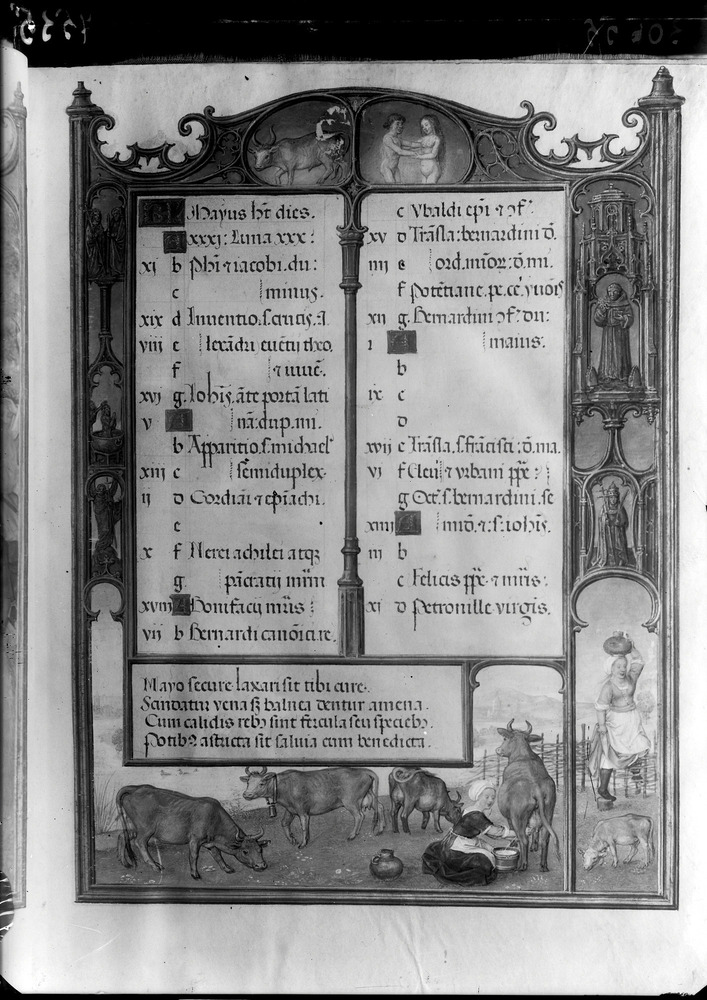 KL Mayus ht dies.
A xxxj: Luna xxx:
xj b Phi ⁊ iacobi. du:
c minus.
xix d Inuentio. s. crucis. a
viij e lexādri euētij theo.
f ⁊ iuuē.
xvj g. Iohis. āte portā lati
v A nā: dup. mi.
b Apparitio. s. michael
xiij c semiduplex
ij d Gordiāi ⁊ epiachi.
e
x f Nerei achilei atqꝫ
g. pācratij mrm
xviij A Bonifacij mris:
vij b Bernardi canōici re.
c Vbaldi epi ⁊ ꝯf.
xv d Trāsla: bernardini ō.
iiij e ord. minoꝝ: ō. mi.
f Potētiane.
xij g. Bernardini ꝯf. du:
i A maius.
b
ix c
d
xvij e Trāsla. s. frācisci: ō. ma.
vj f Eleu ⁊ vrbani ppe:
g Oct. s. bernardini. se
xiiij A mid. ⁊. s. iohis.
iij b
c Felicis ppe ⁊ mris:
xj d Petronille virgis.
Mayo secure laxari sit tibi cure.
Scindatur vena sꝫ balnea dentur amena.
Cum calidis rebꝰ sint fercula seu speciebꝰ.
Potibꝰ astricta sit saluia cum benedicta.